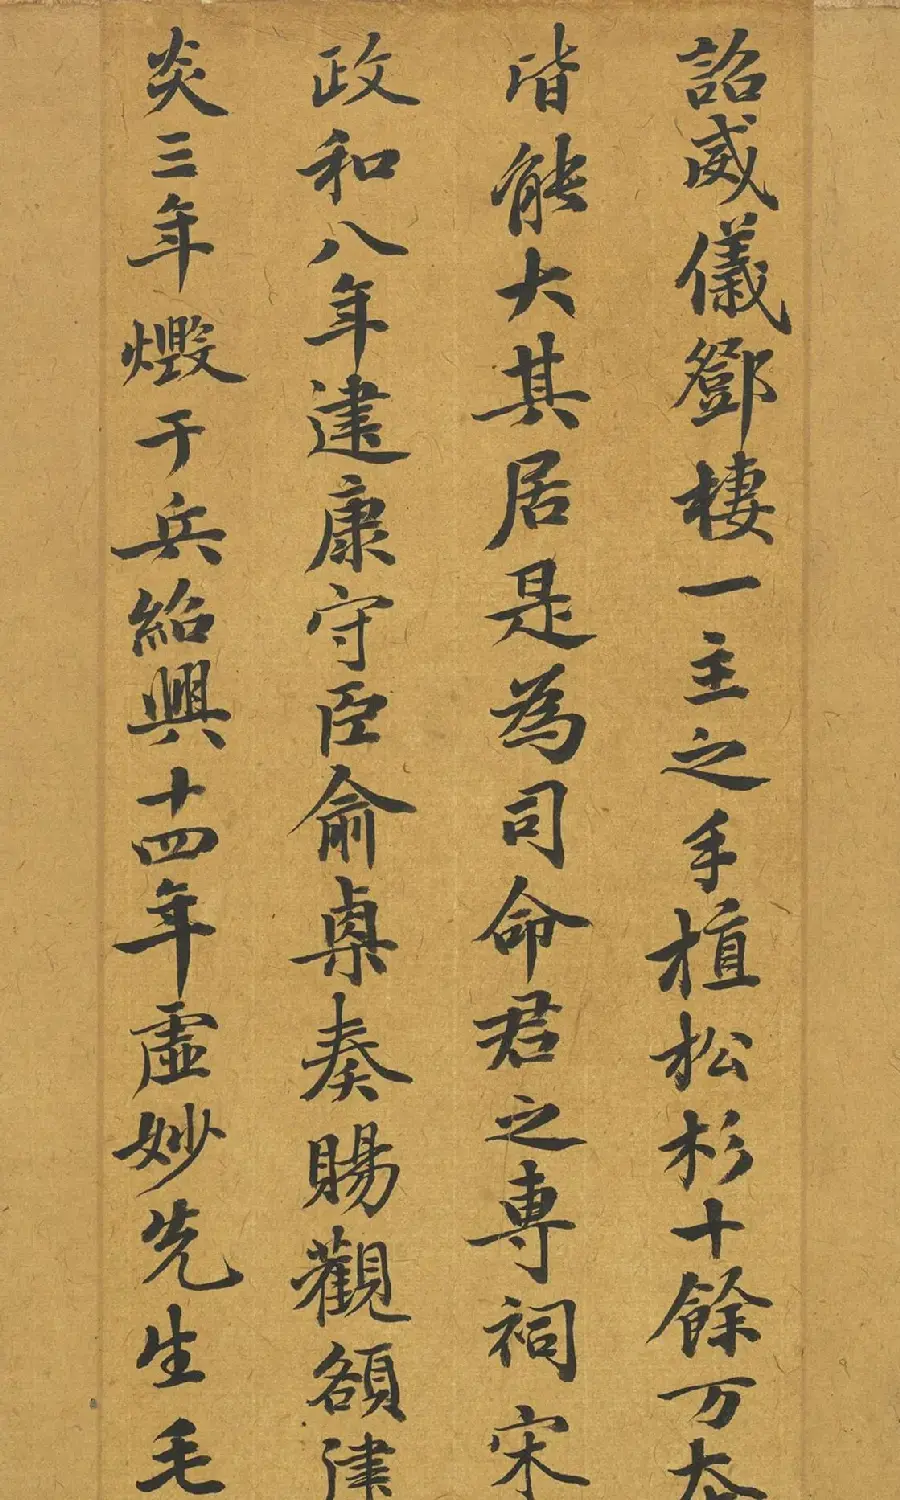 詔威儀鄧棲一主之手植松杉十餘万大
皆能大其居是為司命君之専祠宋
政和八年建康守臣俞㮚奏賜觀額建
炎三年燬于兵紹興十四年虛妙先生毛